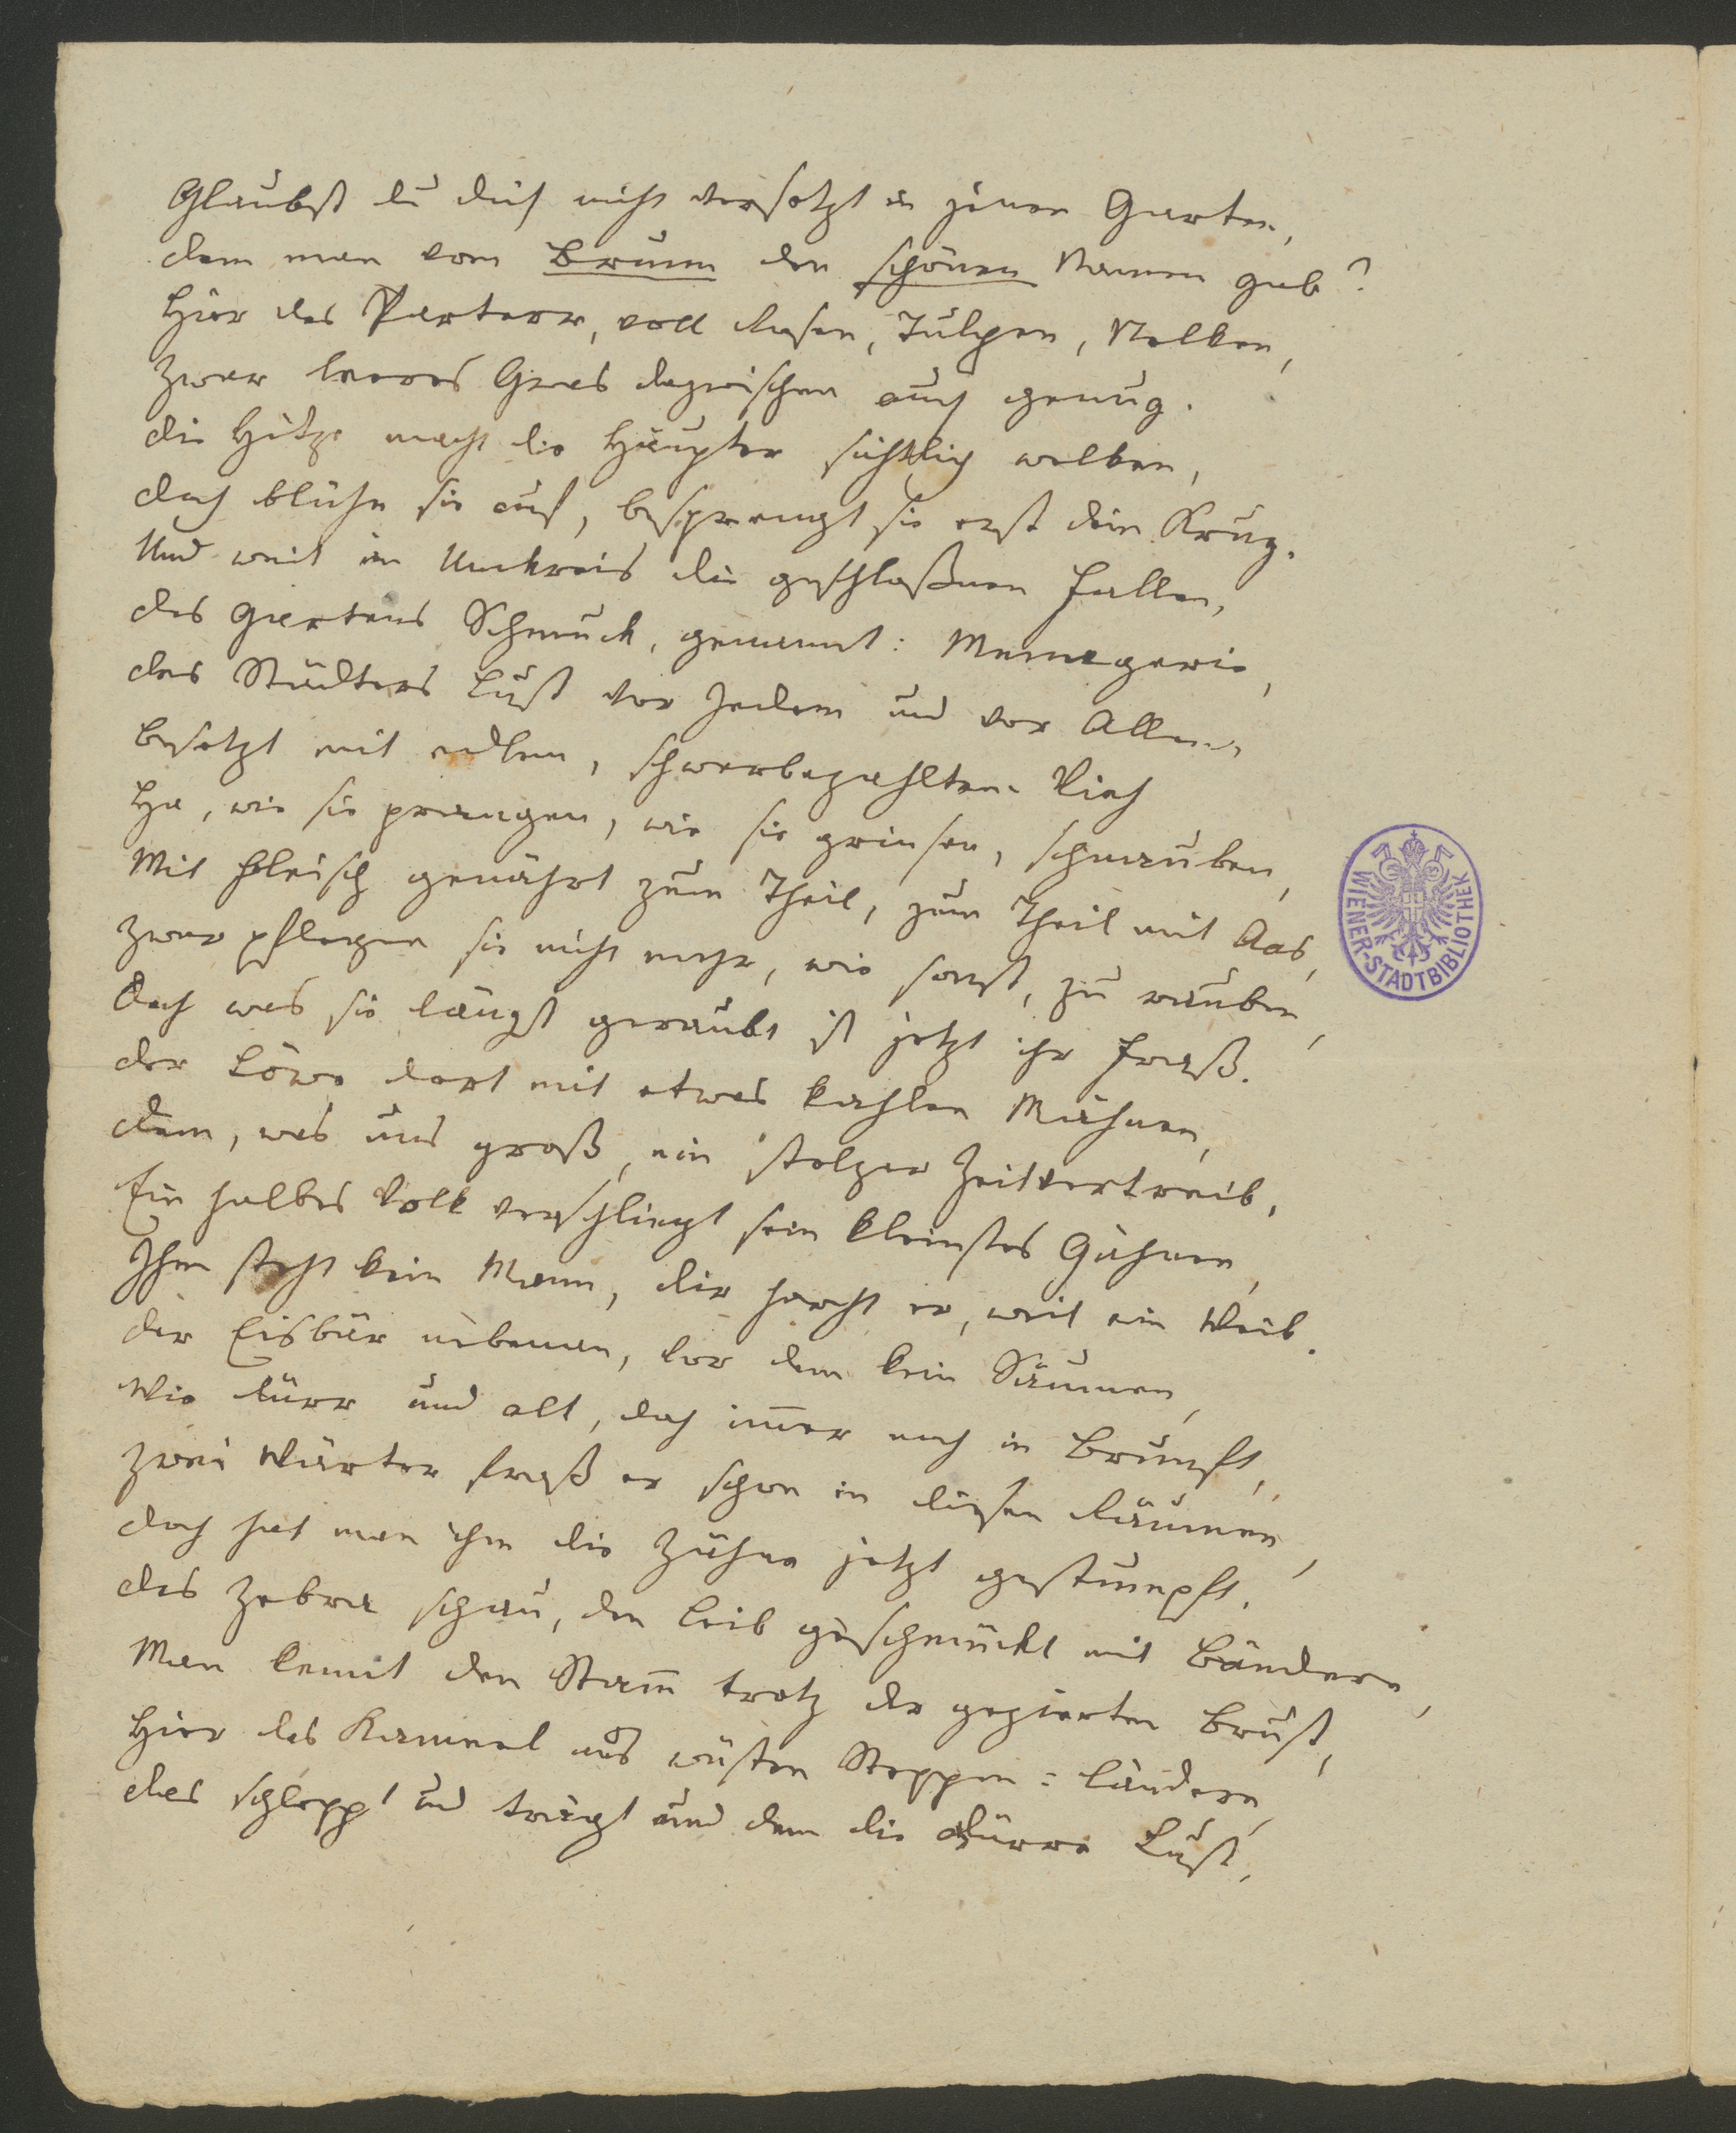 Glaubst du dich nicht versetzt in jenen Garten,
dem man vom Brunn den schönen Namen gab?
Hier das Parterr, voll Rosen, Tulpen, Nelken,
Zwar leeres Gras dazwischen auch genug.
die Hitze macht die Häupter sichtlich welken,
doch blühn sie auf, besprengt sie erst dein Krug.
Und weit im Umkreis die geschloßnen Hallen,
des Gartens Schmuck, genannt: Menagerie,
des Städters Lust vor Jedem und vor Allen,
besetzt mit edlem, schwerbezahltem Vieh
Ha, wie sie prangen, wie sie grinsen, schnauben,
Mit Fleisch genährt zum Theil, zum Theil mit Aas,
Zwar pflegen sie nicht mehr, wie sonst, zu rauben,
Doch was sie längst geraubt ist jetzt ihr Fraß.
der Löwe dort mit etwas kahlen Mähnen,
dem, was uns groß, ein stolzer Zeitvertreib,
Ein halbes Volk verschlingt sein kleinstes Gähnen,
Ihm steht kein Mann, dir horcht er, weil ein Weib.
der Eisbär nebenan, vor dem kein Säumen,
Wie dürr und alt, doch im̅er noch in Brunft,
Zwei Wärter fraß er schon in diesen Räumen,
doch hat man ihm die Zähne jetzt gestumpft.
das Zebra schau, den Leib geschmückt mit Bändern,
Man kennt den Stam̅ trotz der gezierten Brust,
Hier das Kameel aus wüsten Steppen=Ländern,
das schleppt und trägt und dem die Dürre Lust,
WIENER-STADTBIBLIOTHEK